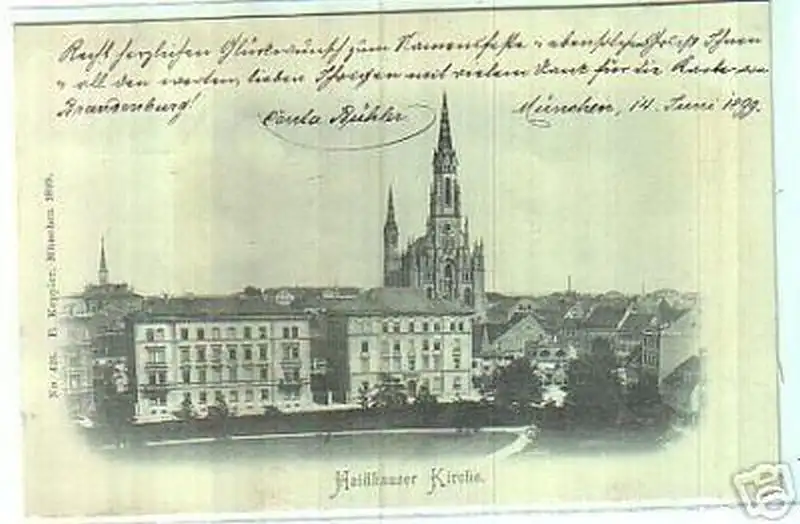 Recht herzlichen Glückwunsch zum Namensfeste u. ebensolchen Gruß Ihnen
u. all den werten, lieben Ihrigen mit vielem Dank für die Karte aus
Brandenburg!
Centa Bühler
München, 14. Juni 1899.
No. 428. E. Keppler, München. 1899.
Haidhauser Kirche.